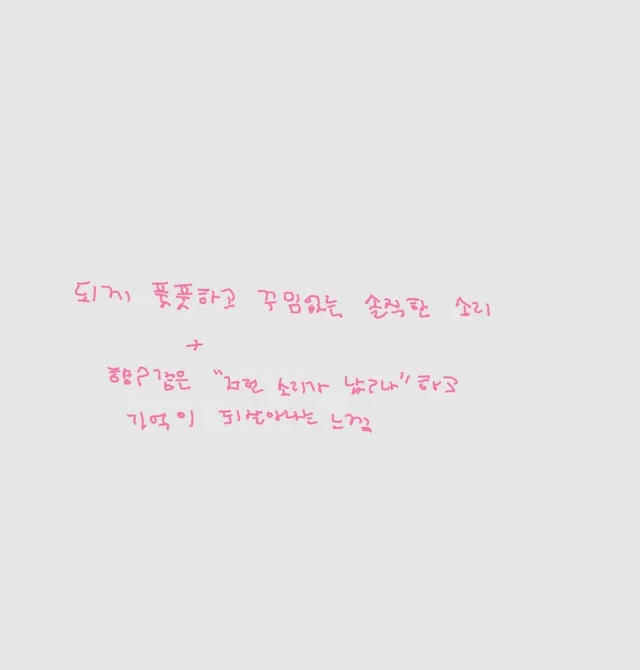 되게 풋풋하고 꾸밈없는 솔직한 소리
+
향수같은 "저런 소리가 났구나" 하고
기억이 되살아나는 느낌